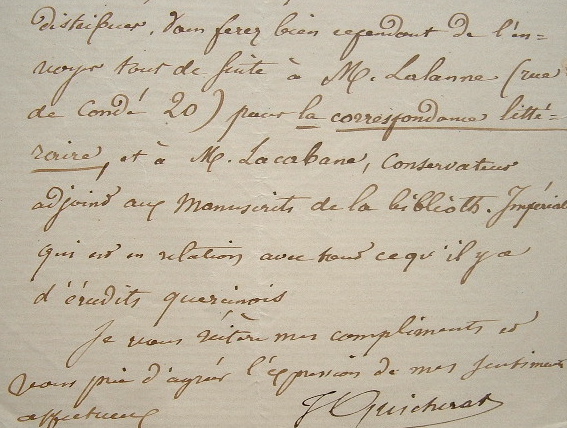 distribuer. Vous ferez bien cependant de l'en=
voyer tout de suite à M. Lalanne (rue
de Condé 20) pour la correspondance litté-
raire, et à M. Lacabane, conservateur
adjoint aux Manuscrits de la biblioth. Impérial
qui est en relation avec tout ce qu'il y a
d'érudits quercinois
Je vous réitère mes compliments et
vous prie d'agréer l'expression de mes sentimen
affectueux
J Quicherat